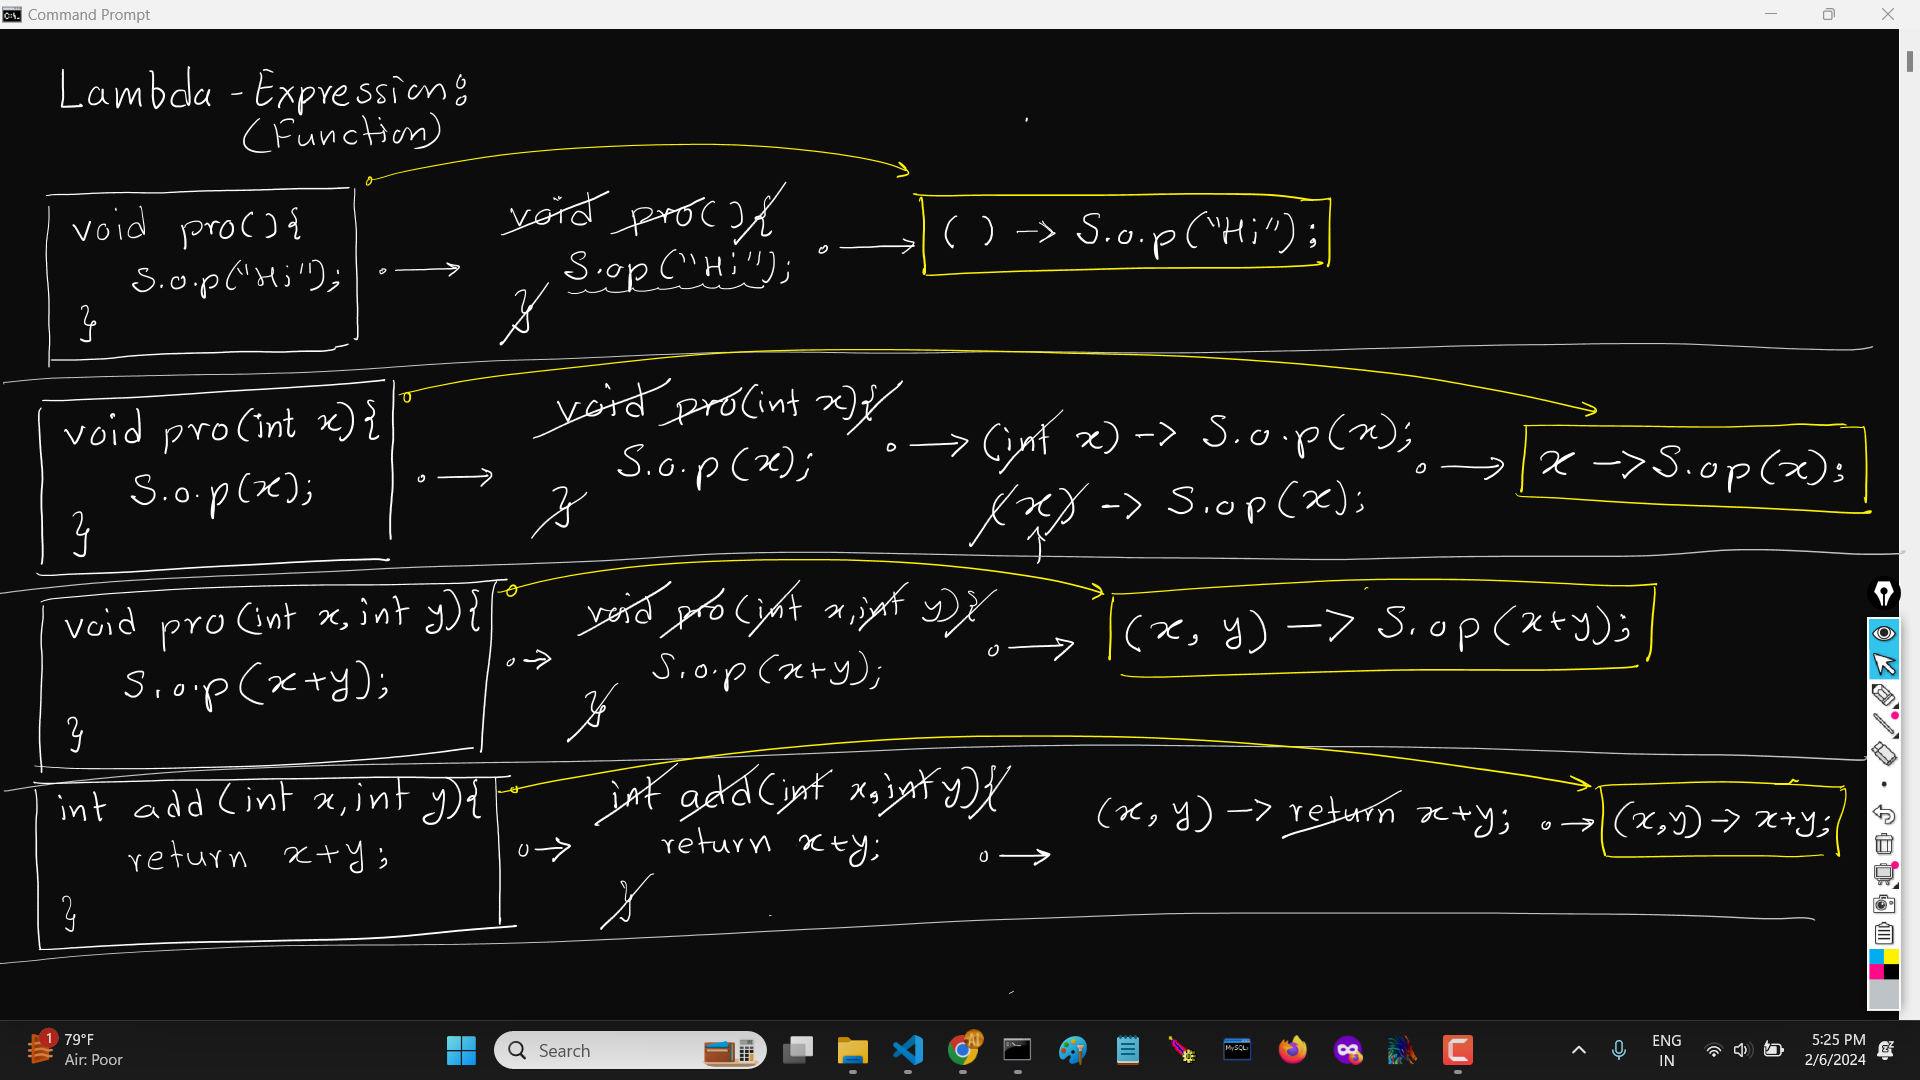 Command Prompt
Lambda - Expression:
(Function)
void pro(){
S.o.p("Hi");
}
void pro(){
S.op("Hi");
}
() -> S.o.p("Hi");
void pro(int x){
S.o.p(x);
}
void pro(int x){
S.o.p(x);
}
(int x) -> S.o.p(x);
(x) -> S.op(x);
x -> S.op(x);
void pro(int x, int y){
S.o.p(x+y);
}
void pro(int x, int y){
S.o.p(x+y);
}
(x, y) -> S.op(x+y);
int add(int x, int y){
return x+y;
}
int add(int x, int y){
return x+y;
}
(x, y) -> return x+y;
(x,y) -> x+y;
1
79°F
Air: Poor
Search
AI
MySQL
ENG
IN
5:25 PM
2/6/2024